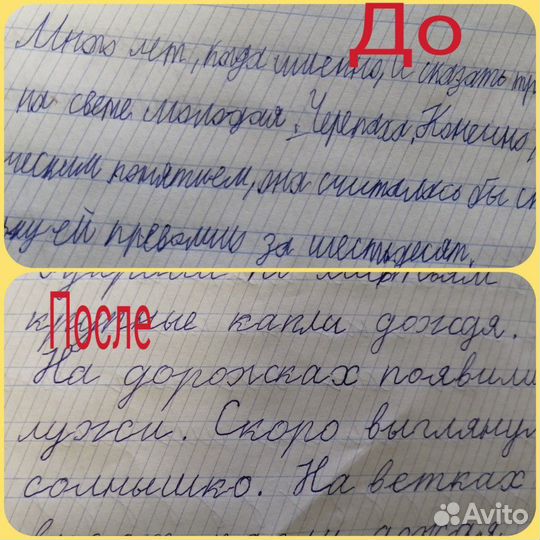 До
Много лет, когда именно, и сказать
на свете молодая Черепаха. Конечно,
ческим понятием, она считалась бы
ей превалило за шестьдесят.
После
крупные капли дождя.
На дорожках появили
лужи. Скоро выглянул
солнышко. На ветках
Avito